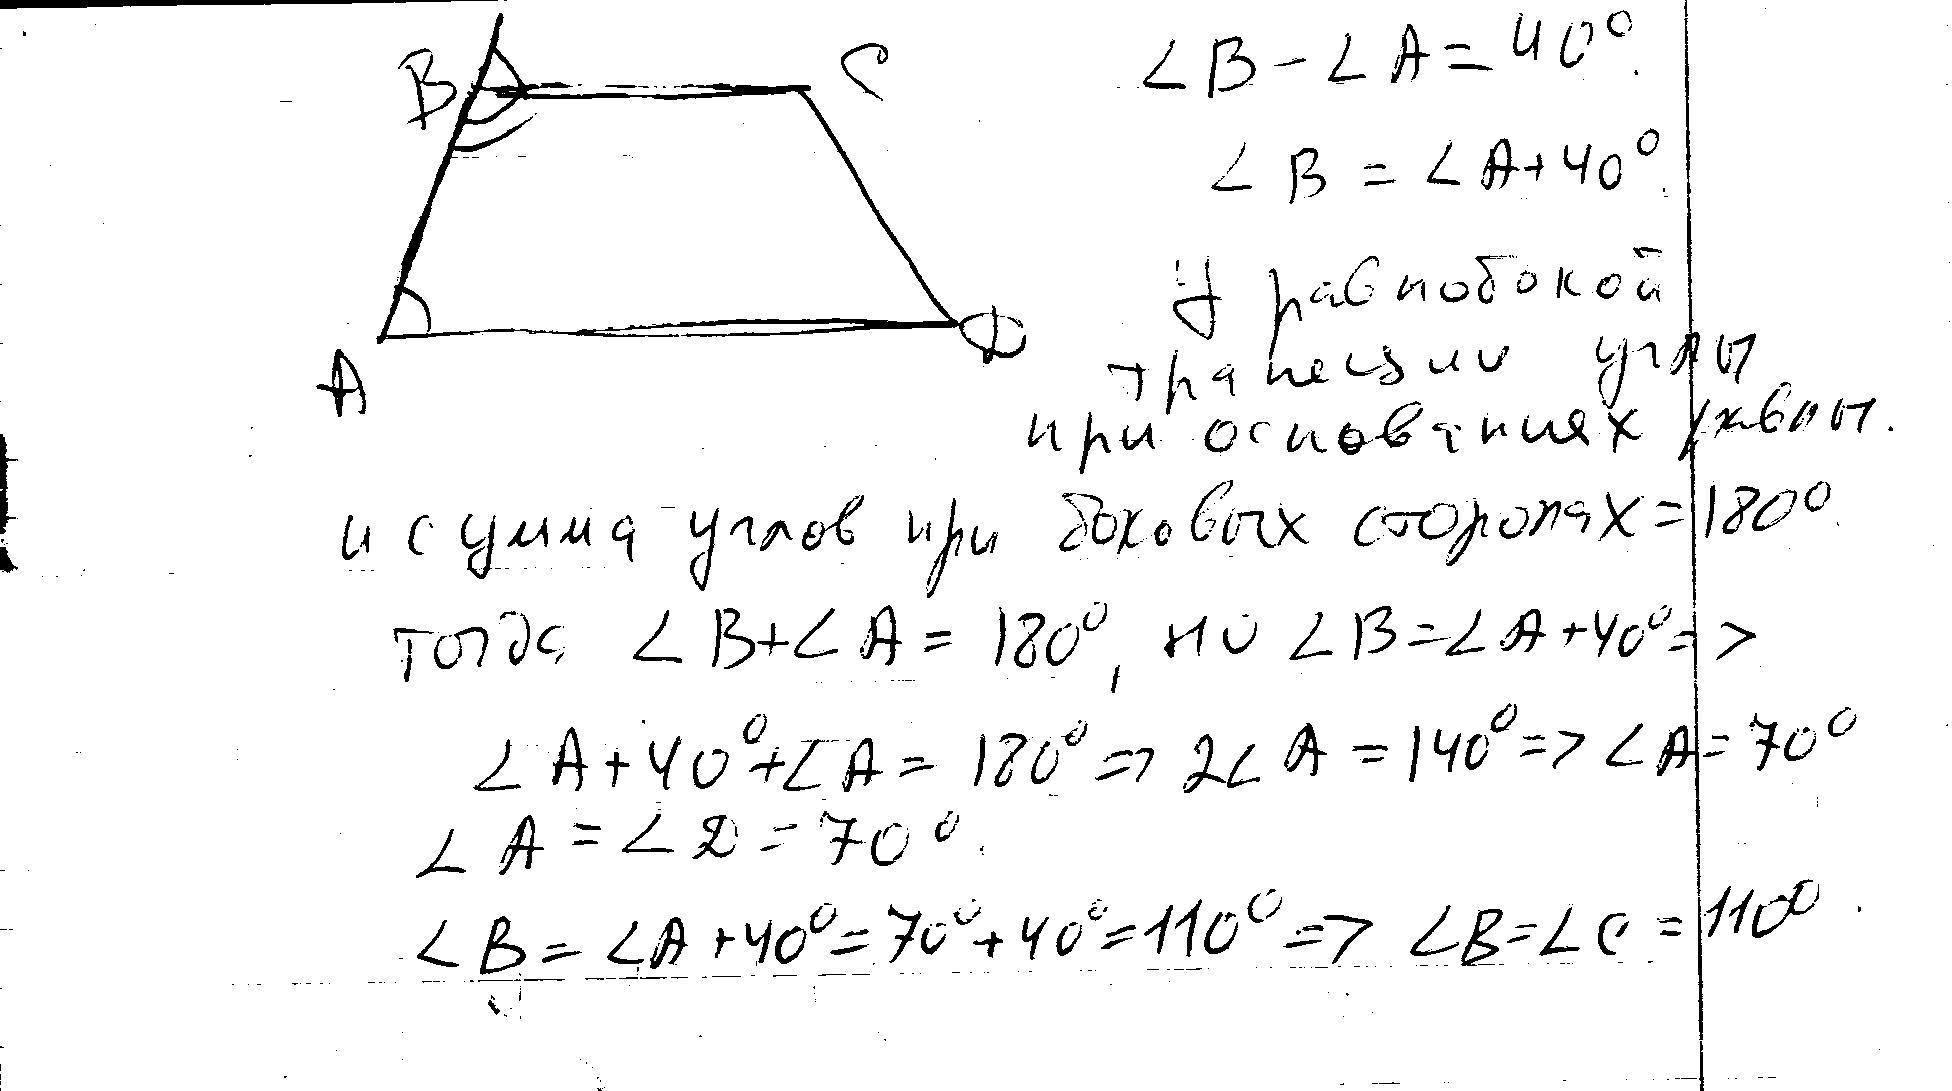 B C
A D
∠B - ∠A = 40°.
∠B = ∠A + 40°.
У равнобокой
трапеции углы
при основаниях равны.
и сумма углов при боковых сторонах = 180°.
тогда ∠B + ∠A = 180°, но ∠B = ∠A + 40° =>
∠A + 40° + ∠A = 180° => 2∠A = 140° => ∠A = 70°
∠A = ∠D = 70°.
∠B = ∠A + 40° = 70° + 40° = 110° => ∠B = ∠C = 110°.